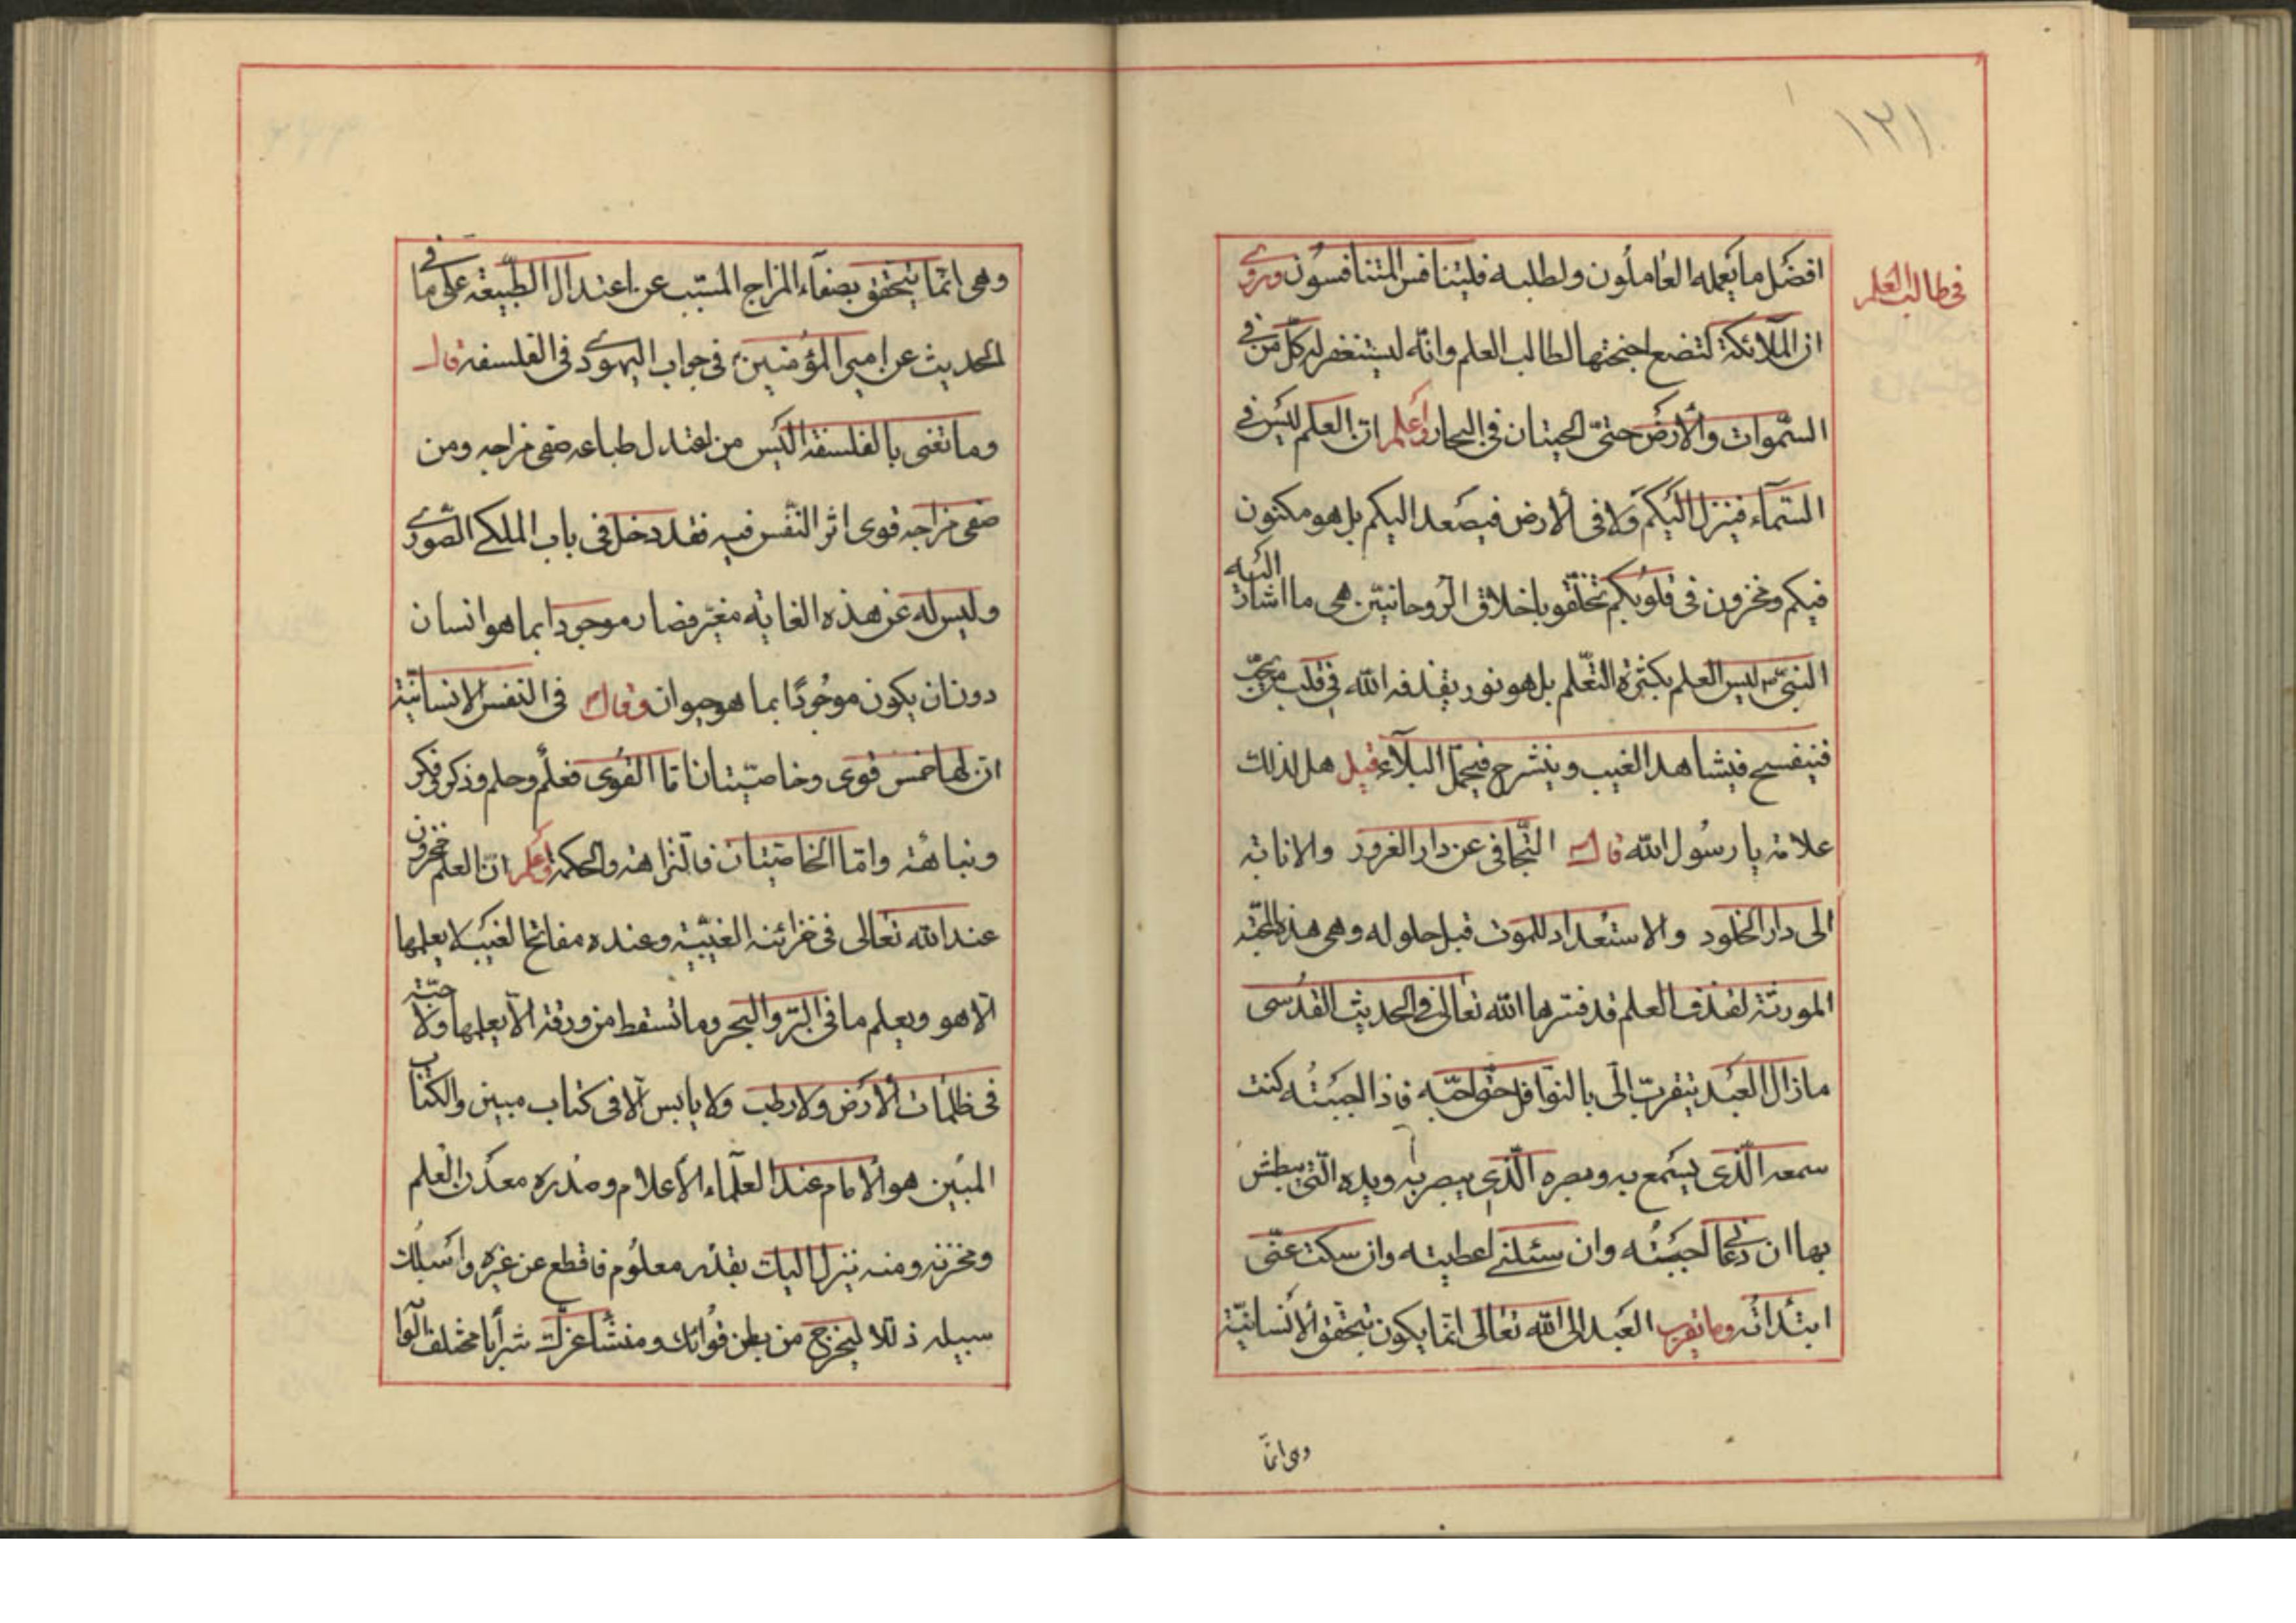 ١٢١
في طالب العلم
افضل ما يعمله العاملون ولطلبه فليتنافس المتنافسون وروى
ان الملآئكة لتضع اجنحتها لطالب العلم وانّه ليستغفر له كلّ من في
السّموات والأرض حتىّ الحيتان في البحار واعلم ان العلم ليس في
السّمآء فينزل اليكم ولا في الارض فيصعد اليكم بل هو مكنون
فيكم ومخزون في قلوبكم تخلّقو باخلاق الرّوحانيّين هي ما اشار اليه
النبيّ ليس العلم بكثرة التعّلم بل هو نور يقذفه الله في قلب من يحبّ
فينفسح فيشاهد الغيب وينشرح فيحمّل البلآء قيل هل لذلك
علامة يا رسول الله قال التّجافي عن دار الغرور والانابة
الى دار الخلود والاستعداد للموت قبل حلوله وهي هذه المحبّة
المورثة لقذف العلم قد فسّرها الله تعالى في الحديث القدسي
مازال العبد يتقرب الّى بالنوّافل حتّى احبّه فاذا احببتُه كنت
سمعه الّذى يسمع به وبصره الّذي يبصر به ويده الّتي يبطش
بها ان دعاني اجبتُه وان سئلني اعطيته وان سكت عنّى
ابتدأته وما تقرب العبد الى الله تعالى انّما يكون بتحقق الأنسانيّة
وهى انمّا
وهي انمّا يتحقق بصفآء المزاج المسبّب عن اعتدال الطّبيعة على ما في
الحديث عن امير المؤمنين في جواب اليهودى في الفلسفة قال
وما تعنى بالفلسفة اليس من اعتدل طباعه صفى مزاجه ومن
صفى مزاجه قوى اثر النّفس فيه فقد دخل في باب الملكي الصّورى
وليس له عن هذه الغاية مغيّر فصار موجودا بما هو انسان
دون ان يكون موجُودًا بما هو حيوان وقال في النفس الانسانيّة
ان لها خمس قوى وخاصّيتان امّا القوى فعلم وحلم وذكر وفكر
ونباهة وامّا الخاصّيتان فالنّزاهة والحكمة واعلم انّ العلم مخزون
عند الله تعالى في خزائنه الغيبيّة وعنده مفاتح الغيب لا يعلمها
الّا هو ويعلم ما في البرّ والبحر وما تسقط من ورقة الّا يعلمها ولا حبّة
في ظلمات الأرض ولا رطب ولا يابس الّا في كتاب مبين والكتاب
المبين هو الامام عند العلمآء الأعلام وصدره معدن العلم
ومخزنه ومنه ينزل اليك بقدر معلوم فاقطع عن غيره واسلك
سبيله ذللا ليخرج من بطن فوائك ومنشأ عزلك شرابًا مختلف الوا